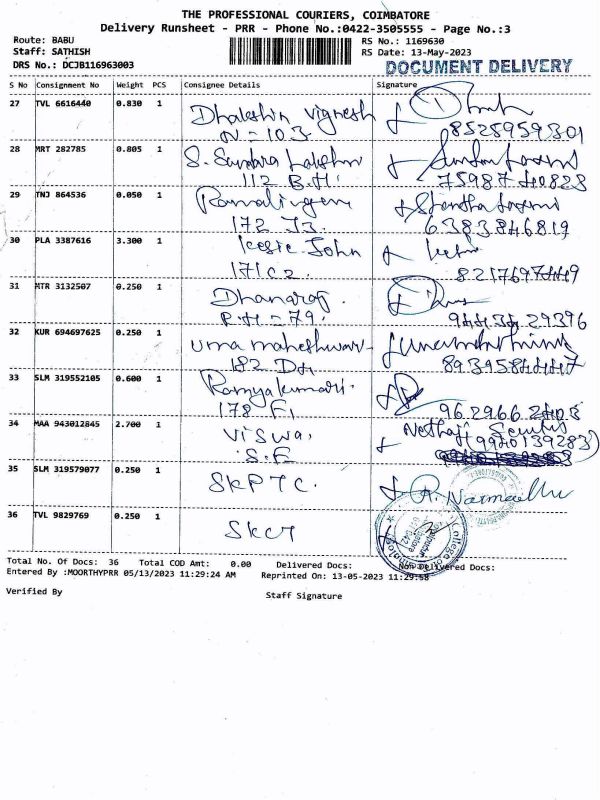 THE PROFESSIONAL COURIERS, COIMBATORE
Delivery Runsheet - PRR - Phone No.:0422-3505555 - Page No.:3
Route: BABU
RS No.: 1169630
Staff: SATHISH
RS Date: 13-May-2023
DRS No.: DCJB116963003
DOCUMENT DELIVERY
S No Consignment No Weight PCS Consignee Details Signature
27 TVL 6616440 0.830 1 Dhakshin Vignesh
N-103 8528959301
28 MRT 282785 0.805 1 S. Sundara Lakshmi
112 B.H. 7598740823
29 TNJ 864536 0.050 1 Ramalingam
172 J3. 6383846819
30 PLA 3387616 3.300 1 Kesie John
171C2. 8217697449
31 MTR 3132507 0.250 1 Dhanaraj.
P.H-79. 9443429396
32 KUR 694697625 0.250 1 Uma maheshwari
182 D4 8939584447
33 SLM 319552105 0.600 1 Ramyakumari.
178 F1 9629662403
34 MAA 943012845 2.700 1 Viswa,
S.F (9940139283)
35 SLM 319579077 0.250 1 SKPTC.
36 TVL 9829769 0.250 1 SKCT
Total No. Of Docs: 36 Total COD Amt: 0.00 Delivered Docs: Non Delivered Docs:
Entered By :MOORTHYPRR 05/13/2023 11:29:24 AM Reprinted On: 13-05-2023 11:29:58
Verified By Staff Signature